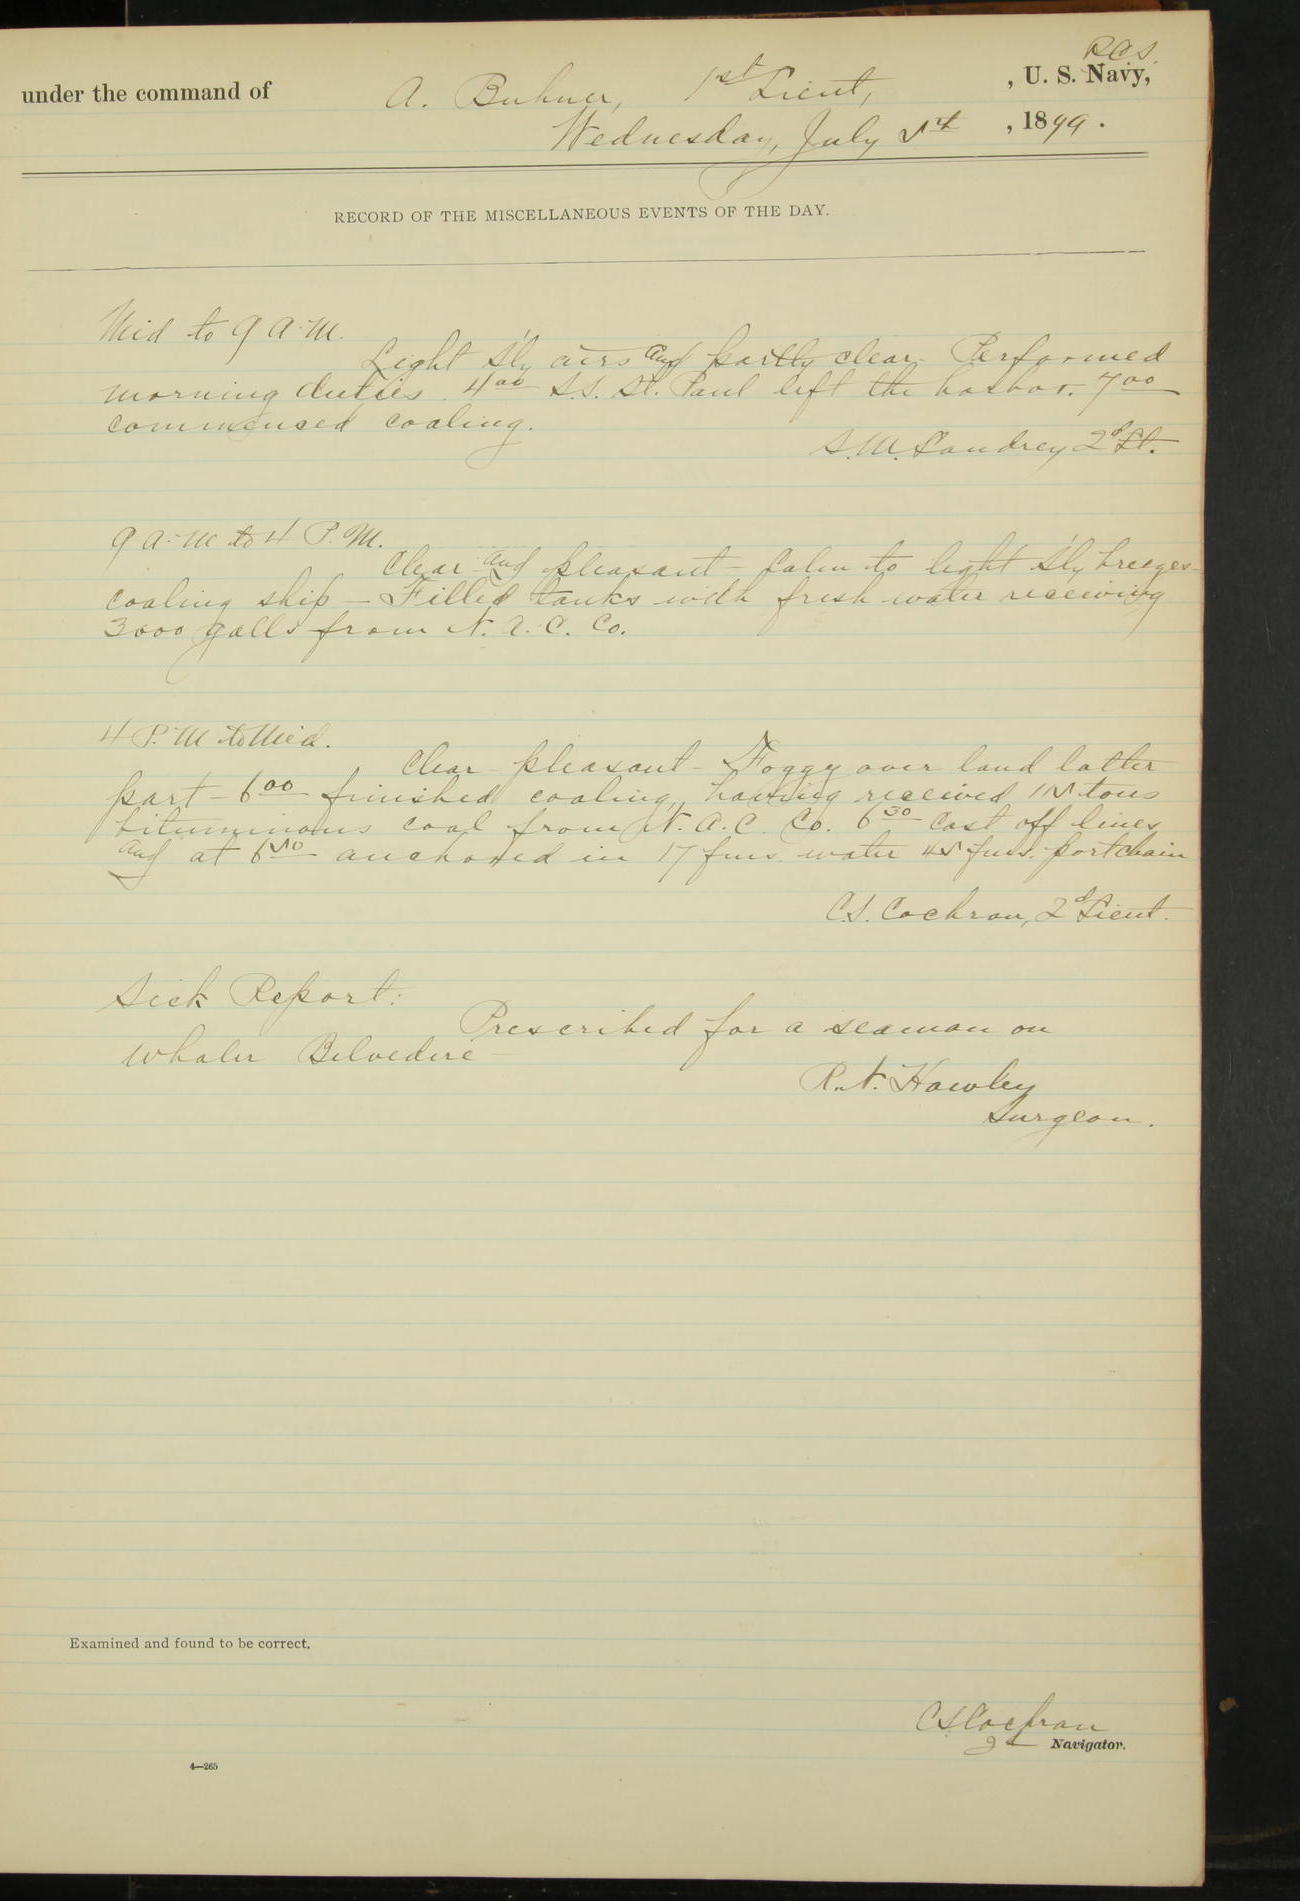 R C S.
under the command of A. Buhner, 1st Lieut, , U. S. Navy,
Wednesday, July 5th , 1899.
RECORD OF THE MISCELLANEOUS EVENTS OF THE DAY.
Mid to 9 A.M.
Light S'ly airs and partly clear. Performed
morning duties. 4 00 S.S. St. Paul left the harbor. 7 00
commenced coaling.
S.M. Landrey 2d Lt.
9 A.M to 4 P.M.
Clear and pleasant - Calm to light S'ly breezes -
Coaling ship - Filled tanks with fresh water receiving
3000 galls from N. A. C. Co.
4 P.M to Mid.
Clear pleasant - Foggy over land latter
part - 6 00 finished coaling, having received 15 tons
bituminous coal from N. A. C. Co. 6 30 Cast off lines
and at 6 50 anchored in 17 fms water 45 fms. port chain
C.S. Cochran, 2d Lieut.
Sick Report:
Prescribed for a seaman on
Whaler Belvedere -
R. N. Hawley
Surgeon.
Examined and found to be correct.
C S Cochran
Navigator.
4—265